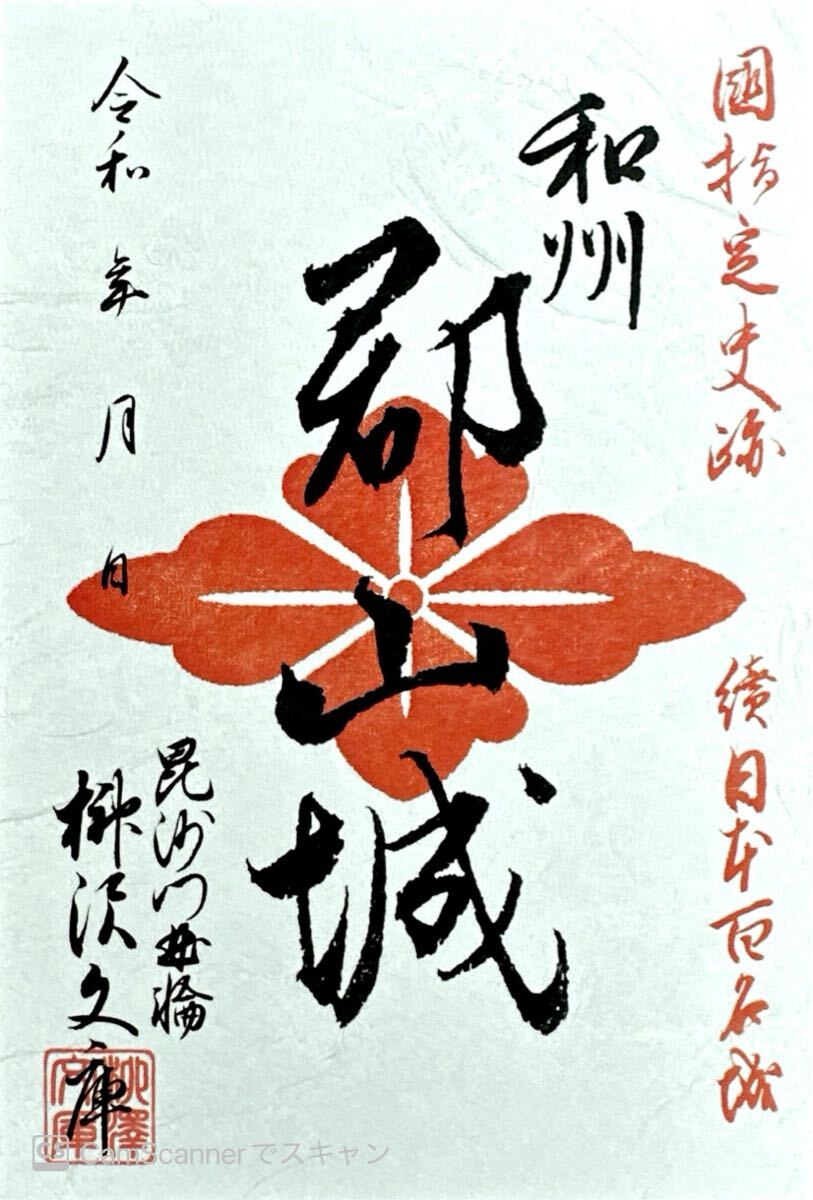 國指定史跡
續日本百名城
和州
郡山城
令和 年 月 日
毘沙門曲輪
柳沢文庫
柳澤文庫
CamScannerでスキャン